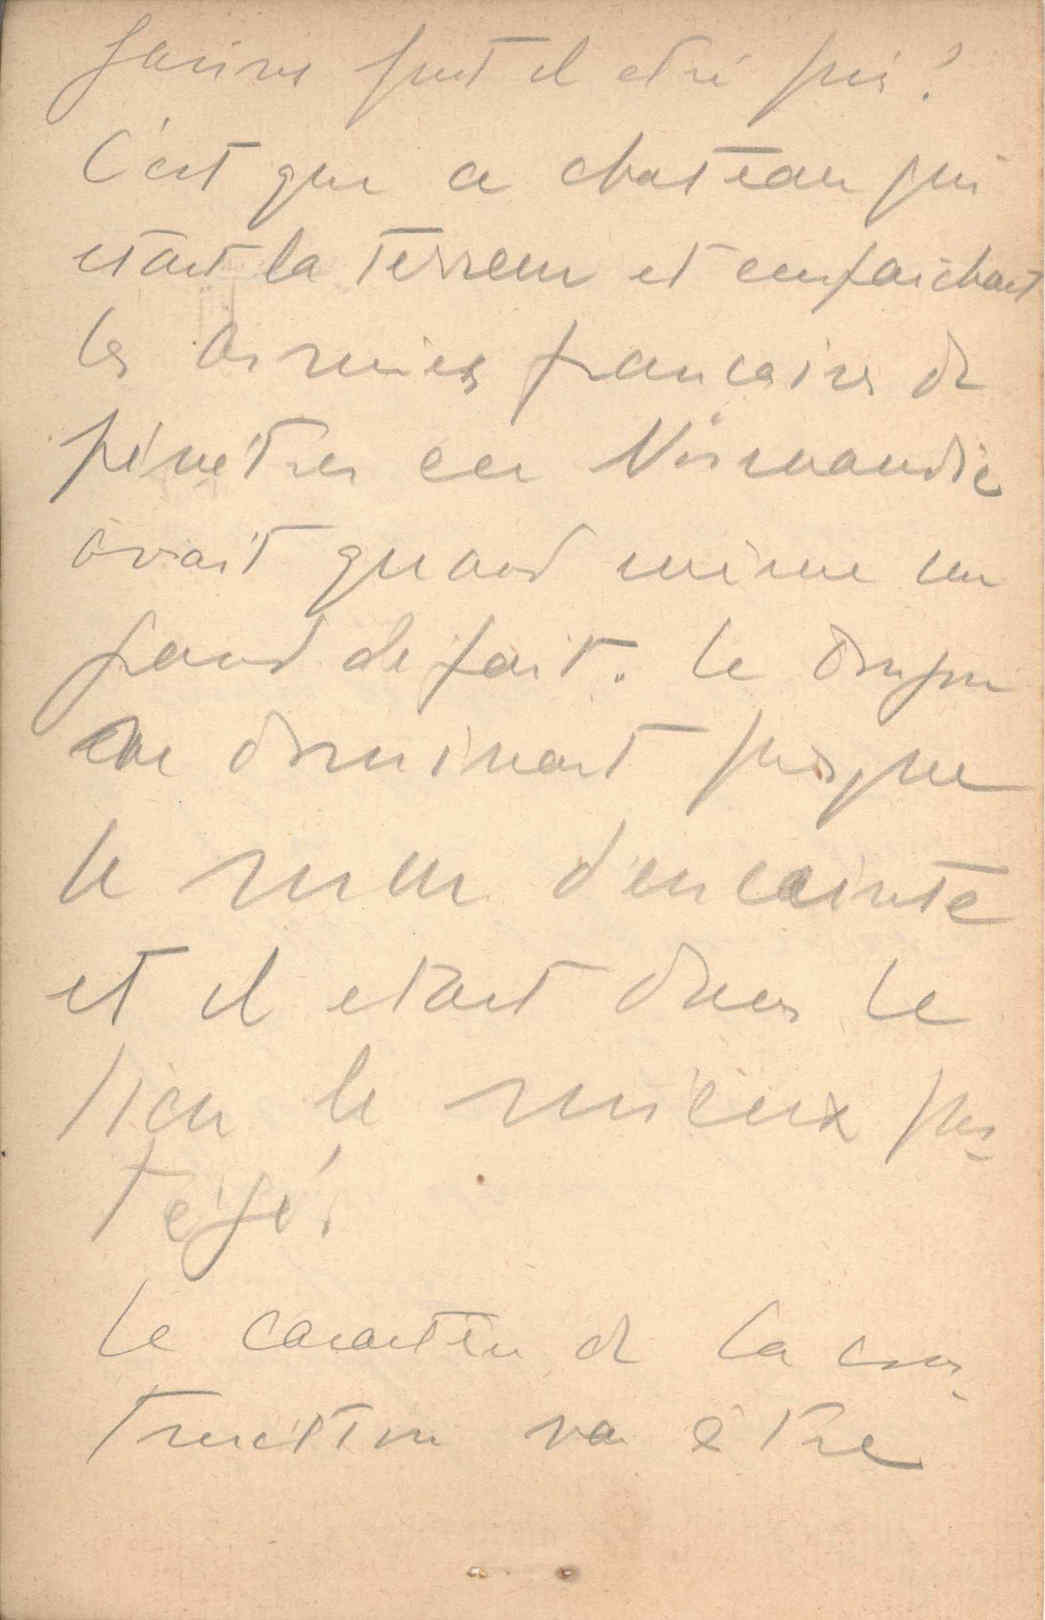 fut il etre pris?
C'est que ce chateau qui
etait la terreur et empaichait
les Armées francaises de
pénétrer en Normandie
avait quand même un
grand defait. le donjon
ne dominait presque
le mur d'encainte
et il etait dans le
lieu le mieux pro-
tégé.
Le caractère de la cons-
truction va être